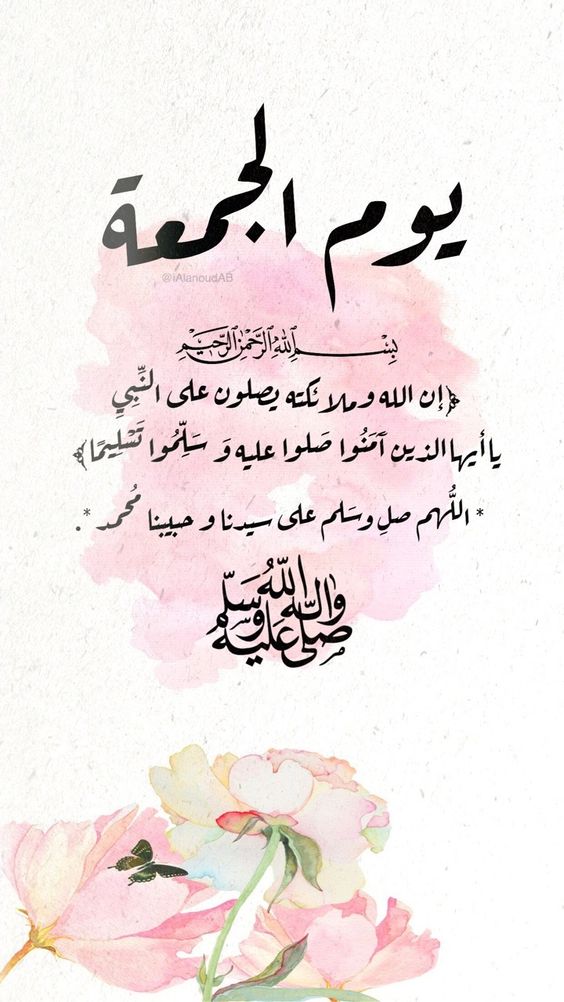 يوم الجمعة
@iAlanoudAB
بِسْمِ ٱللَّهِ ٱلرَّحْمَٰنِ ٱلرَّحِيمِ
﴿إن الله وملائكته يصلون على النَّبِيِّ
يا أيها الذين آمَنُوا صَلوا عليه وَ سَلِّمُوا تَسْلِيمًا﴾
* اللَّهم صلِ وسَلم على سيدنا و حبيبنا مُحمد *.
صلى الله عليه وآله وسلم